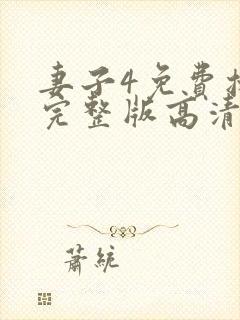 妻子4免费
完整版高清
萧统